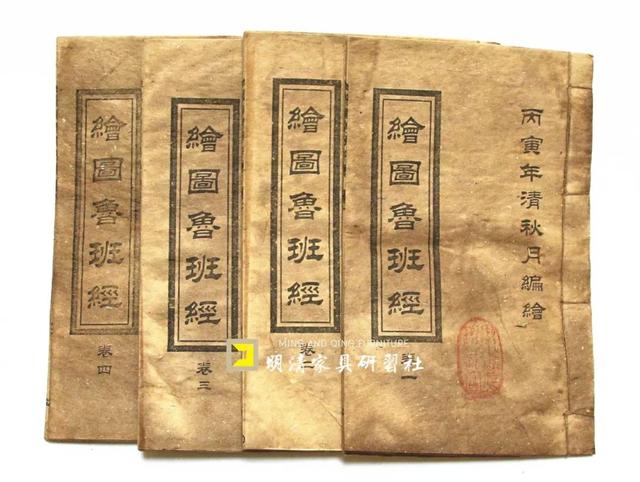 繪圖魯班經
卷四
繪圖魯班經
卷三
繪圖魯班經
卷
繪圖魯班經
卷一
丙寅年清秋月編繪
MING AND QING FURNITURE
明清家具研習社